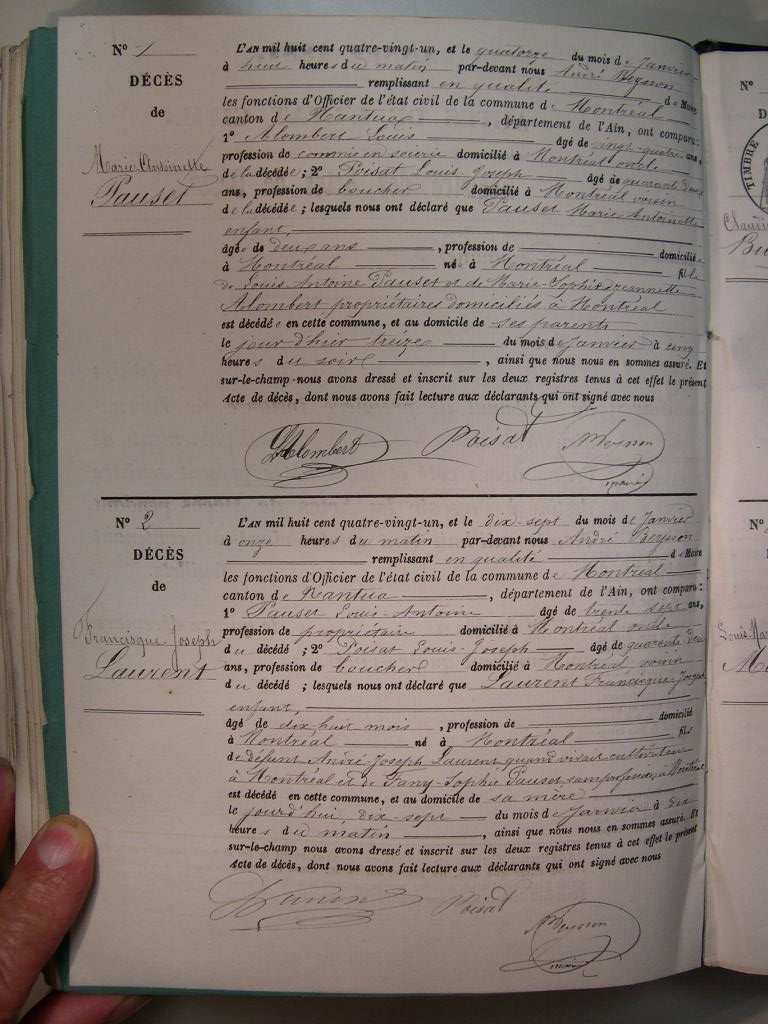 N° 1
DÉCÈS
de
Marie Antoinette
Pauset
L'AN mil huit cent quatre-vingt-un, et le quatorze du mois de Janvier
à heures du matin par-devant nous André
remplissant en qualité de Maire
les fonctions d'Officier de l'état civil de la commune de Montréal
canton de Nantua, département de l'Ain, ont comparu:
1° Alombert Louis âgé de vingt-quatre ans,
profession de commis en domicilié à Montréal oncle
de la décédée; 2° Poisat Louis Joseph âgé de quarante deux
ans, profession de boucher domicilié à Montréal voisin
de la décédée; lesquels nous ont déclaré que Pauset Marie Antoinette
enfant,
âgée de deux ans, profession de domiciliée
à Montréal née à Montréal fille
de Louis Antoine Pauset et de Marie-Sophie Jeannette
Alombert propriétaires domiciliés à Montréal
est décédée en cette commune, et au domicile de ses parents
le jour d'hier treize du mois de Janvier à cinq
heures du soir, ainsi que nous nous en sommes assuré. Et
sur-le-champ nous avons dressé et inscrit sur les deux registres tenus à cet effet le présent
Acte de décès, dont nous avons fait lecture aux déclarants qui ont signé avec nous
Alombert Poisat
maire
N° 2
DÉCÈS
de
Francisque Joseph
Laurent
L'AN mil huit cent quatre-vingt-un, et le dix-sept du mois de Janvier
à onze heures du matin par-devant nous André
remplissant en qualité de Maire
les fonctions d'Officier de l'état civil de la commune de Montréal
canton de Nantua, département de l'Ain, ont comparu:
1° Pauset Louis-Antoine âgé de trente sept ans,
profession de propriétaire domicilié à Montréal oncle
du décédé; 2° Poisat Louis-Joseph âgé de quarante deux
ans, profession de boucher domicilié à Montréal voisin
du décédé; lesquels nous ont déclaré que Laurent Francisque Joseph
enfant,
âgé de dix huit mois, profession de domicilié
à Montréal né à Montréal fils
de défunt André Joseph Laurent quand vivait cultivateur
à Montréal et de Fany-Sophie Pauset sans profession à Montréal
est décédé en cette commune, et au domicile de sa mère
le jour d'hui dix-sept du mois de Janvier à dix
heures du matin, ainsi que nous nous en sommes assuré. Et
sur-le-champ nous avons dressé et inscrit sur les deux registres tenus à cet effet le présent
Acte de décès, dont nous avons fait lecture aux déclarants qui ont signé avec nous
Poisat
maire
N°
D
TIMBRE
N°